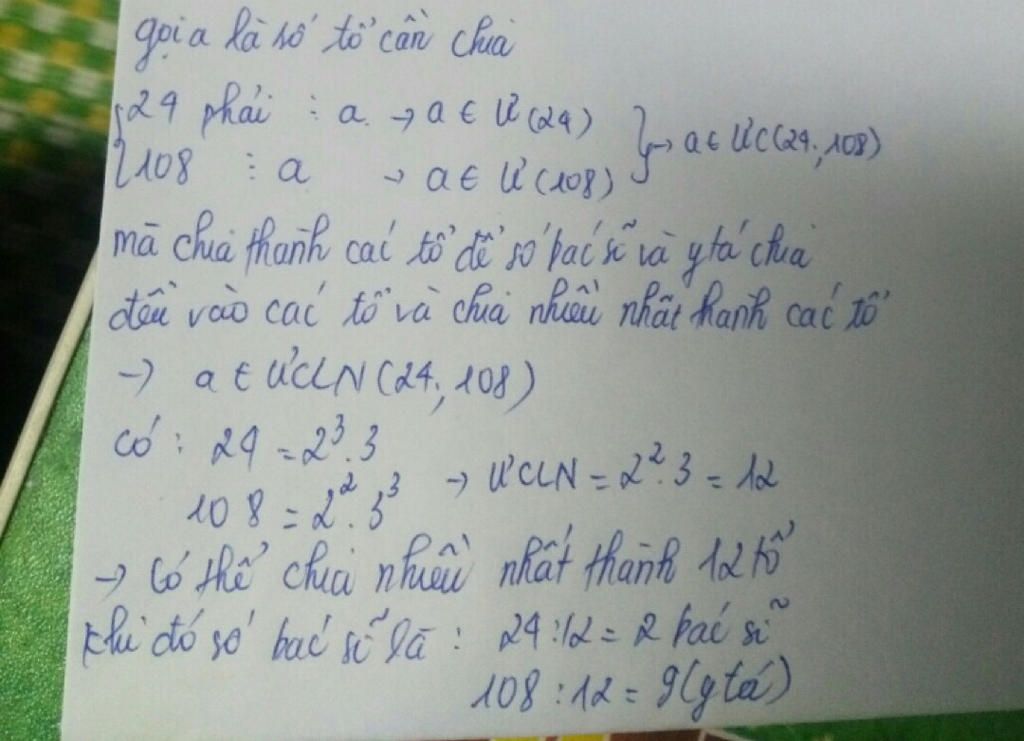 gọi a là số tổ cần chia
24 phải ⋮ a. → a ∈ Ư(24)
108 ⋮ a → a ∈ Ư(108)
} → a ∈ ƯC(24; 108)
mà chia thành các tổ để số bác sĩ và y tá chia
đều vào các tổ và chia nhiều nhất thành các tổ
→ a ∈ ƯCLN(24; 108)
có : 24 = 2³.3
108 = 2².3³
→ ƯCLN = 2².3 = 12
→ Có thể chia nhiều nhất thành 12 tổ
khi đó số bác sĩ là : 24:12 = 2 bác sĩ
108 :12 = 9(y tá)